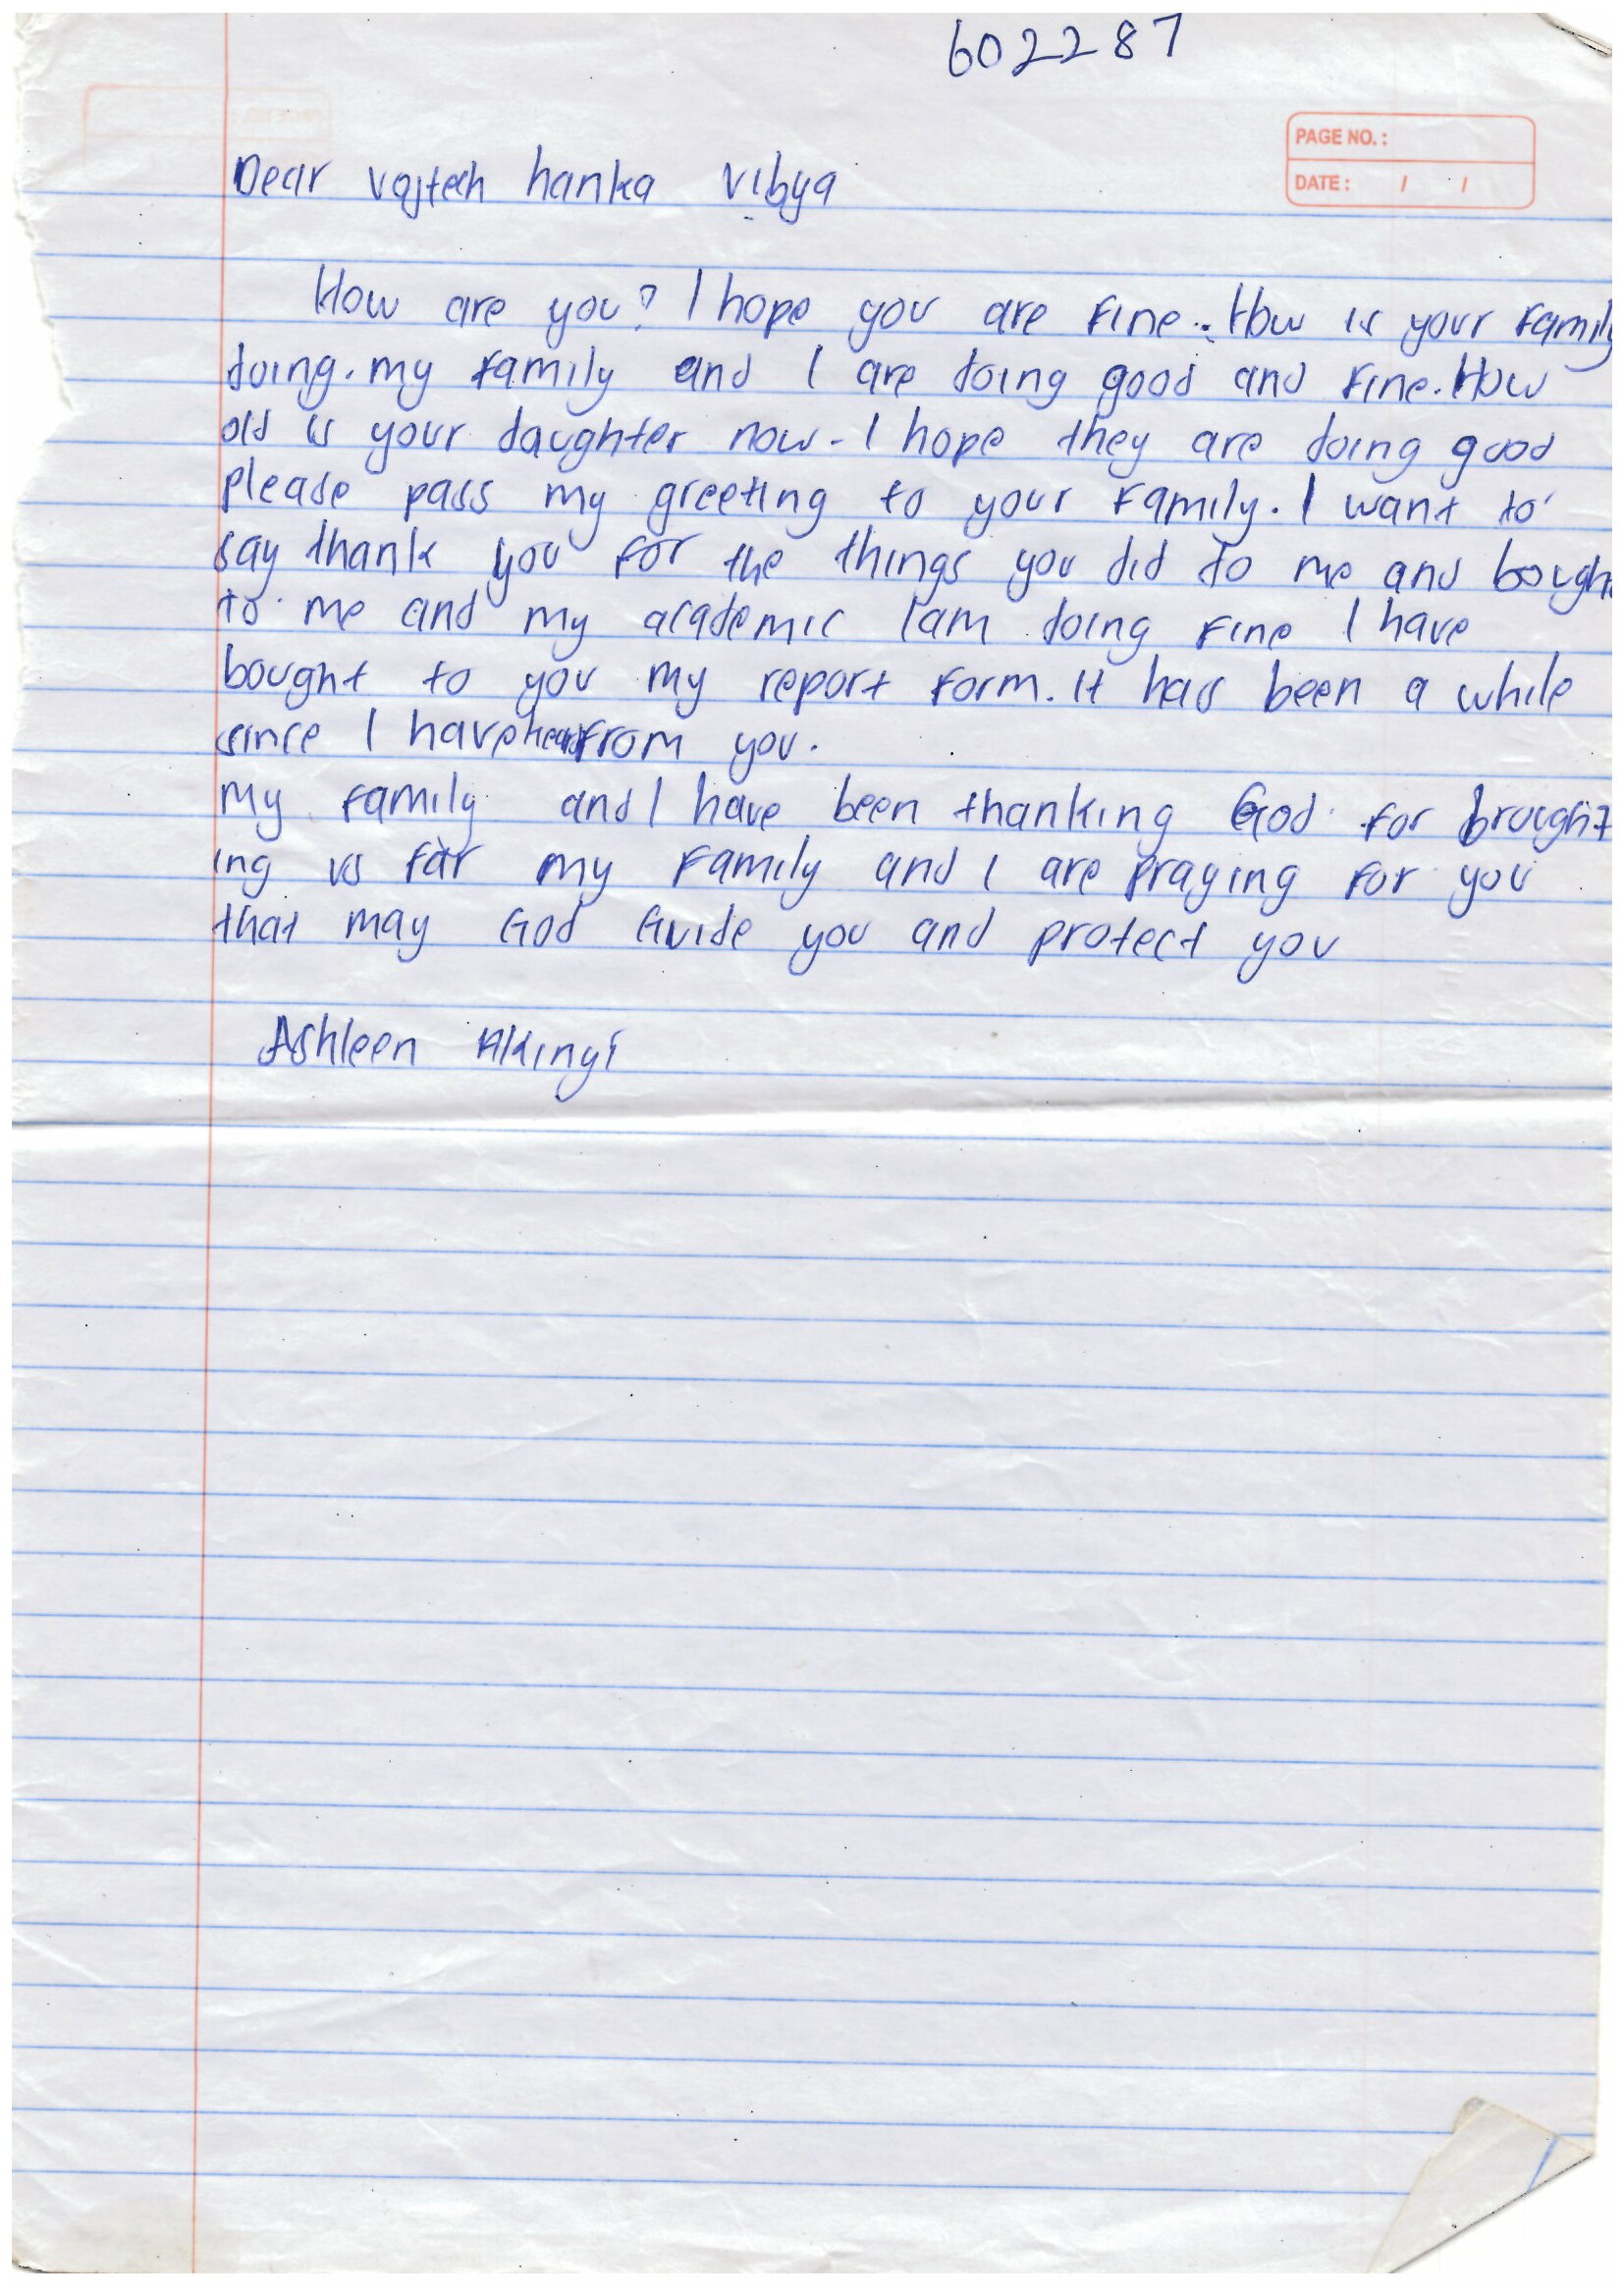 602287
PAGE NO. :
DATE : / /
Dear vojtech hanka vibya
How are you? I hope you are fine. How is your family
doing. my family and I are doing good and fine. How
old is your daughter now. I hope they are doing good
please pass my greeting to your family. I want to
say thank you for the things you did to me and bought
to me and my academic I am doing fine I have
bought to you my report form. It has been a while
since I have heard from you.
My family and I have been thanking God for brought
ing us far my family and I are praying for you
that may God Guide you and protect you
Ashleen Akinyi